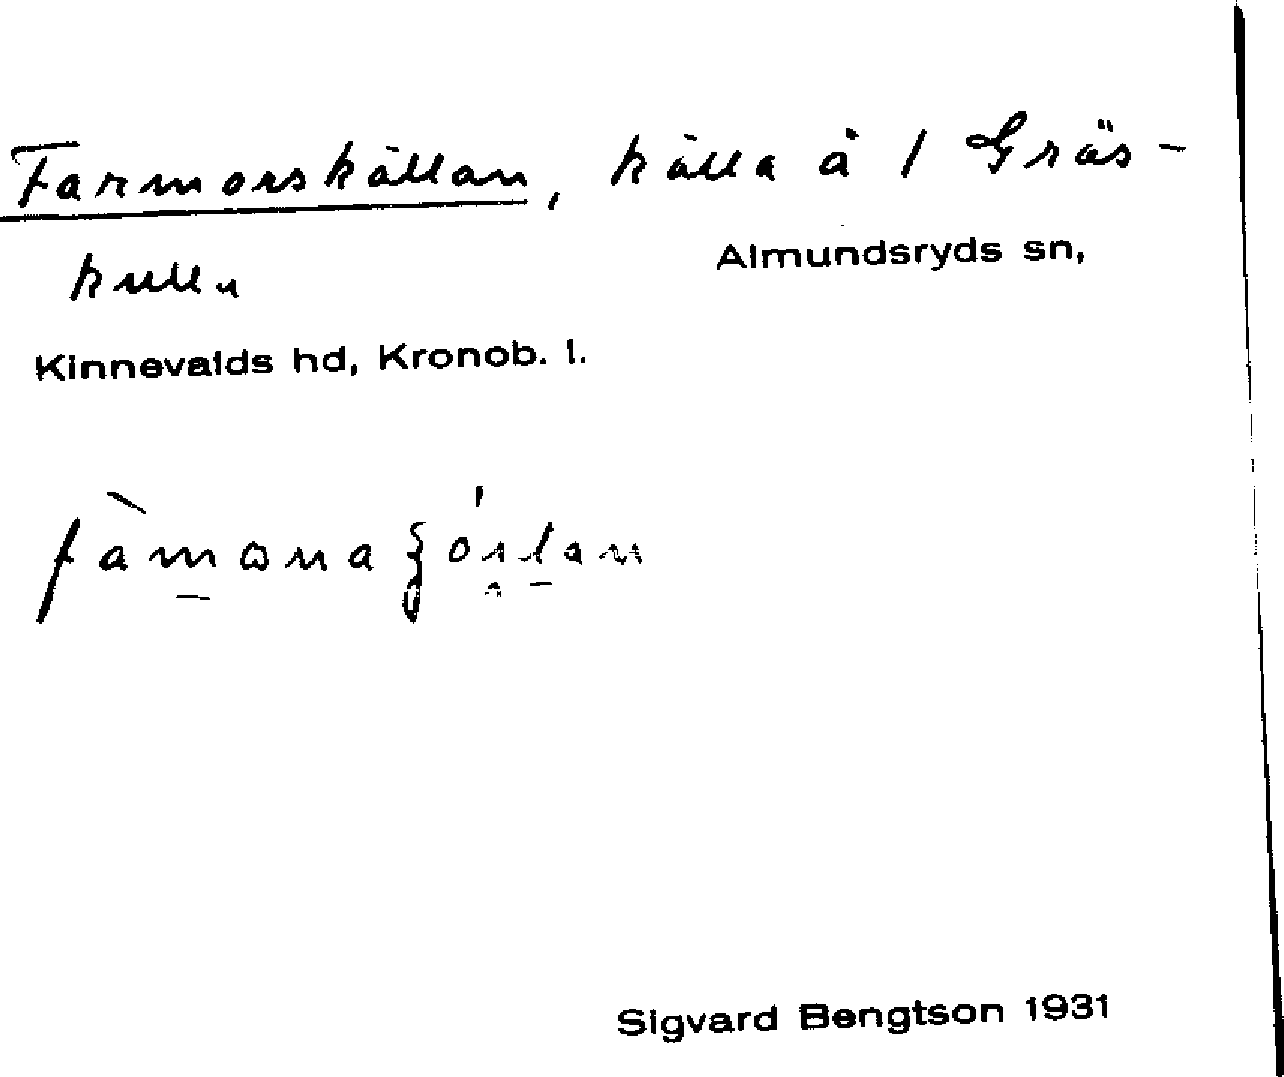 Farmorskällan, källa å 1 Gräs-
kulla
Almundsryds sn,
Kinnevalds hd, Kronob. l.
Sigvard Bengtson 1931